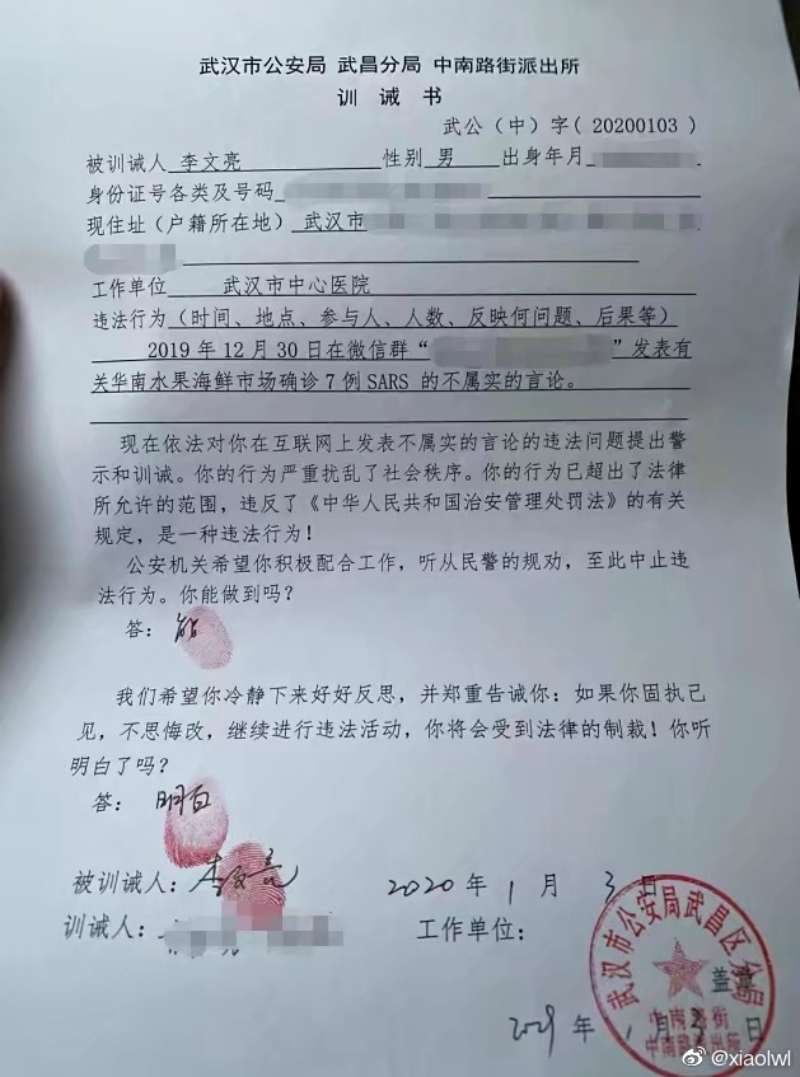 武汉市公安局 武昌分局 中南路街派出所
训 诫 书
武公（中）字( 20200103 )
被训诫人 李文亮 性别 男 出身年月
身份证号各类及号码
现住址（户籍所在地） 武汉市
工作单位 武汉市中心医院
违法行为（时间、地点、参与人、人数、反映何问题、后果等）
2019 年 12 月 30 日在微信群“ ”发表有
关华南水果海鲜市场确诊 7 例 SARS 的不属实的言论。
现在依法对你在互联网上发表不属实的言论的违法问题提出警
示和训诫。你的行为严重扰乱了社会秩序。你的行为已超出了法律
所允许的范围，违反了《中华人民共和国治安管理处罚法》的有关
规定，是一种违法行为！
公安机关希望你积极配合工作，听从民警的规劝，至此中止违
法行为。你能做到吗？
答： 能
我们希望你冷静下来好好反思，并郑重告诫你：如果你固执己
见，不思悔改，继续进行违法活动，你将会受到法律的制裁！你听
明白了吗？
答： 明白
被训诫人：李文亮 2020 年 1 月 3 日
训诫人： 工作单位：
武汉市公安局武昌区分局
盖章
中南路街
中南路派出所
年 1 月 3 日
@xiaolwl